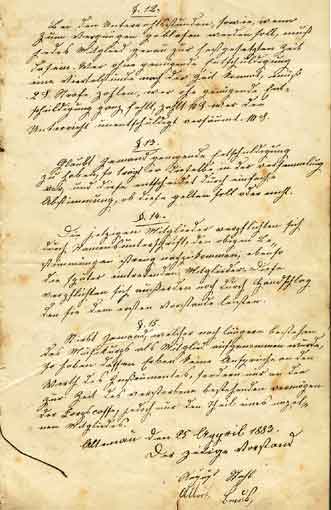 §. 12.
Bei den Unterrichtsstunden, sowie, wenn
zum Vergnügen geblasen werden soll, muß
jedes Mitglied genau zur festgesetzten Zeit
da sein. Wer ohne genügende Entschuldigung
eine Viertelstunde nach der Zeit kommt, muß
2 ₰ Strafe zahlen, wer ohne genügende Ent-
schuldigung ganz fehlt, zahlt
Unterricht unentschuldigt versäumt
§. 13.
Glaubt Jemand genügende Entschuldigung
zu haben, so trägt er dieselbe in der Versammlung
vor, und diese entscheidet durch einfache
Abstimmung, ob diese gelten soll oder nicht.
§. 14.
Die jetzigen Mitglieder verpflichten sich
durch Namensunterschrift, den obigen Be-
stimmungen streng nachzukommen, ebenso
die später eintretenden Mitglieder. Diese
verpflichten sich außerdem noch durch Handschlag
den sie dem ersten Vorstande leisten.
§. 15.
Stirbt Jemand, welcher nach längerem Bestehen
des Musikcorps als Mitglied aufgenommen wurde,
so haben dessen Erben keine Ansprüche an den
Werth des Instrumentes, sondern nur an das
zur Zeit des bestehenden Vermögen
der jedoch nur den Theil eines einzel-
nen Mitgliedes.
Altenau den 25 Appril 1883.
Der zeitige Vorstand
August